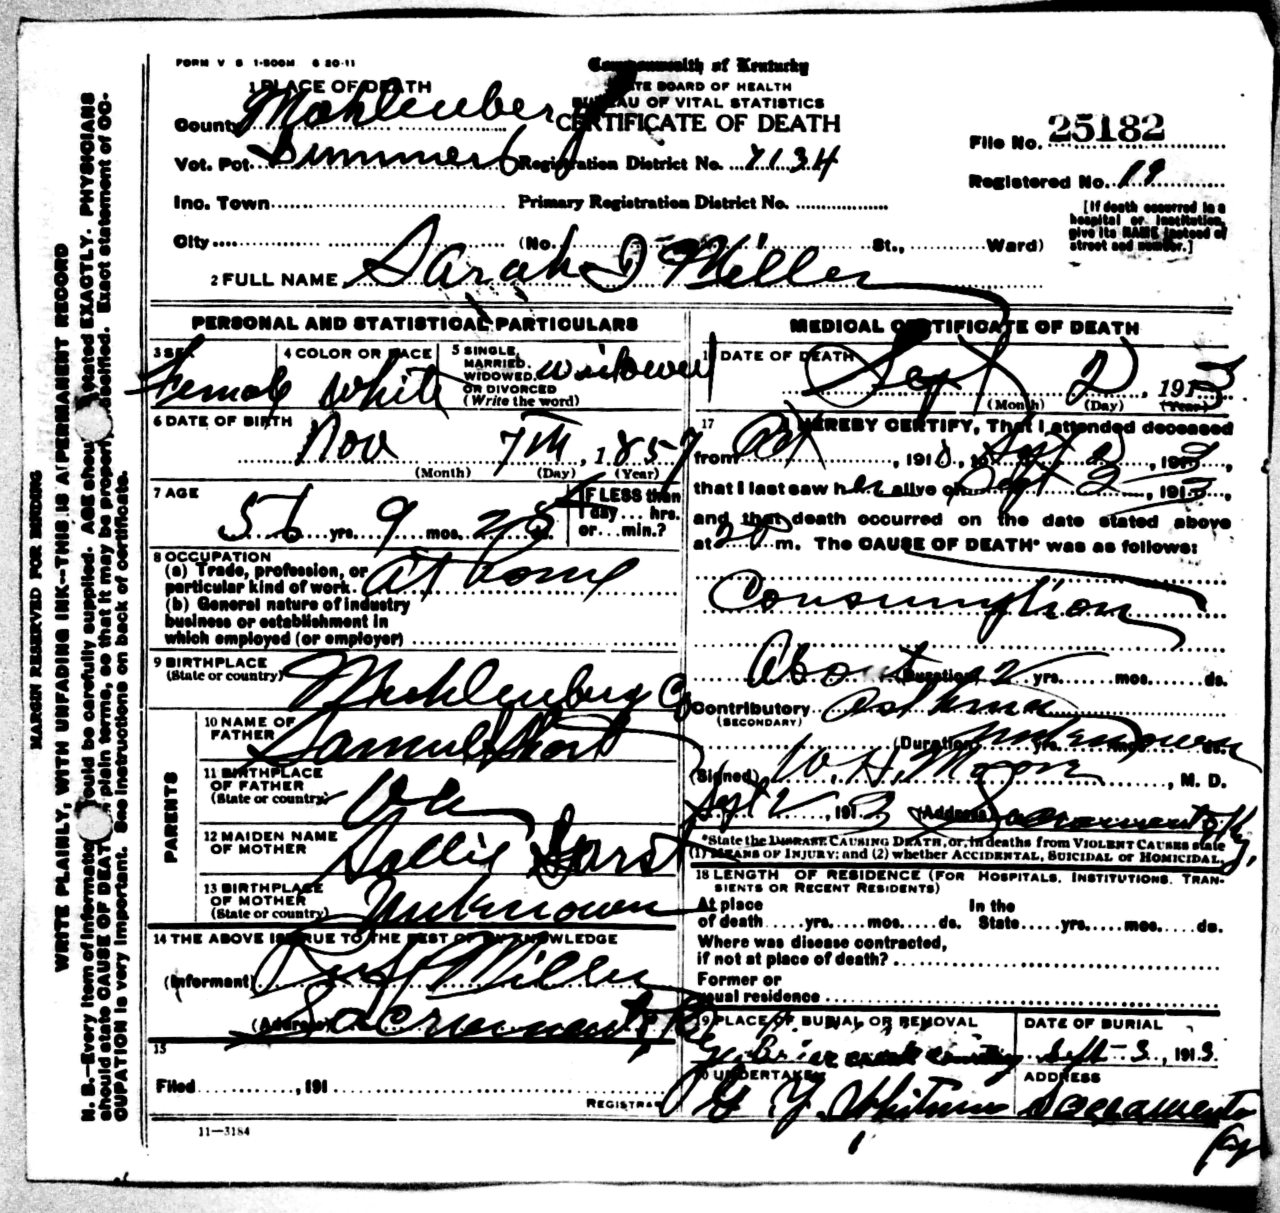 FORM V S 1-500M 6 20-11
Commonwealth of Kentucky
STATE BOARD OF HEALTH
BUREAU OF VITAL STATISTICS
CERTIFICATE OF DEATH
1 PLACE OF DEATH
County Mohlenberg
Vot. Pct. Registration District No. 7134
Inc. Town Primary Registration District No.
City (No. St., Ward)
File No. 25182
Registered No. 19
[If death occurred in a hospital or institution, give its NAME instead of street and number.]
2 FULL NAME Sarah I Miller
PERSONAL AND STATISTICAL PARTICULARS
3 SEX Female
4 COLOR OR RACE White
5 SINGLE, MARRIED, WIDOWED, OR DIVORCED (Write the word) widowed
6 DATE OF BIRTH Nov 7th, 1857
(Month) (Day) (Year)
7 AGE
yrs. 9 mos. ds.
IF LESS than 1 day... hrs. or... min.?
8 OCCUPATION
(a) Trade, profession, or particular kind of work. at home
(b) General nature of industry business or establishment in which employed (or employer)
9 BIRTHPLACE (State or country) Muhlenburg Co
PARENTS
10 NAME OF FATHER Samuel Short
11 BIRTHPLACE OF FATHER (State or country)
12 MAIDEN NAME OF MOTHER Sallie
13 BIRTHPLACE OF MOTHER (State or country) Unknown
14 THE ABOVE IS TRUE TO THE BEST OF MY KNOWLEDGE
(Informant) Miller
(Address) Sacramento, Ky
15
Filed, 191
REGISTRAR
11—3184
MEDICAL CERTIFICATE OF DEATH
16 DATE OF DEATH Sept 2, 1913
(Month) (Day) (Year)
17 I HEREBY CERTIFY, That I attended deceased
from Oct, 191 , to Sept 2, 1913,
that I last saw her alive on Sept 2, 1913,
and that death occurred on the date stated above
at m. The CAUSE OF DEATH* was as follows:
Consumption
About (Duration) 2 yrs. mos. ds.
Contributory (SECONDARY) Asthma
(Duration) unknown yrs. mos. ds.
(Signed) W. H. Moon, M. D.
Sept 2, 1913 (Address) Sacramento Ky.
*State the DISEASE CAUSING DEATH, or, in deaths from VIOLENT CAUSES state
(1) MEANS OF INJURY; and (2) whether ACCIDENTAL, SUICIDAL or HOMICIDAL.
18 LENGTH OF RESIDENCE (FOR HOSPITALS, INSTITUTIONS, TRANSIENTS OR RECENT RESIDENTS)
At place of death yrs. mos. ds. In the State yrs. mos. ds.
Where was disease contracted, if not at place of death?
Former or usual residence
19 PLACE OF BURIAL OR REMOVAL
Brier creek
DATE OF BURIAL
Sept 3, 1913
20 UNDERTAKER
G. Y. Whitmer
ADDRESS
Sacramento Ky
MARGIN RESERVED FOR BINDING
WRITE PLAINLY, WITH UNFADING INK—THIS IS A PERMANENT RECORD
N. B.—Every item of information should be carefully supplied. AGE should be stated EXACTLY. PHYSICIANS
should state CAUSE OF DEATH in plain terms, so that it may be properly classified. Exact statement of OC-
CUPATION is very important. See instructions on back of certificate.